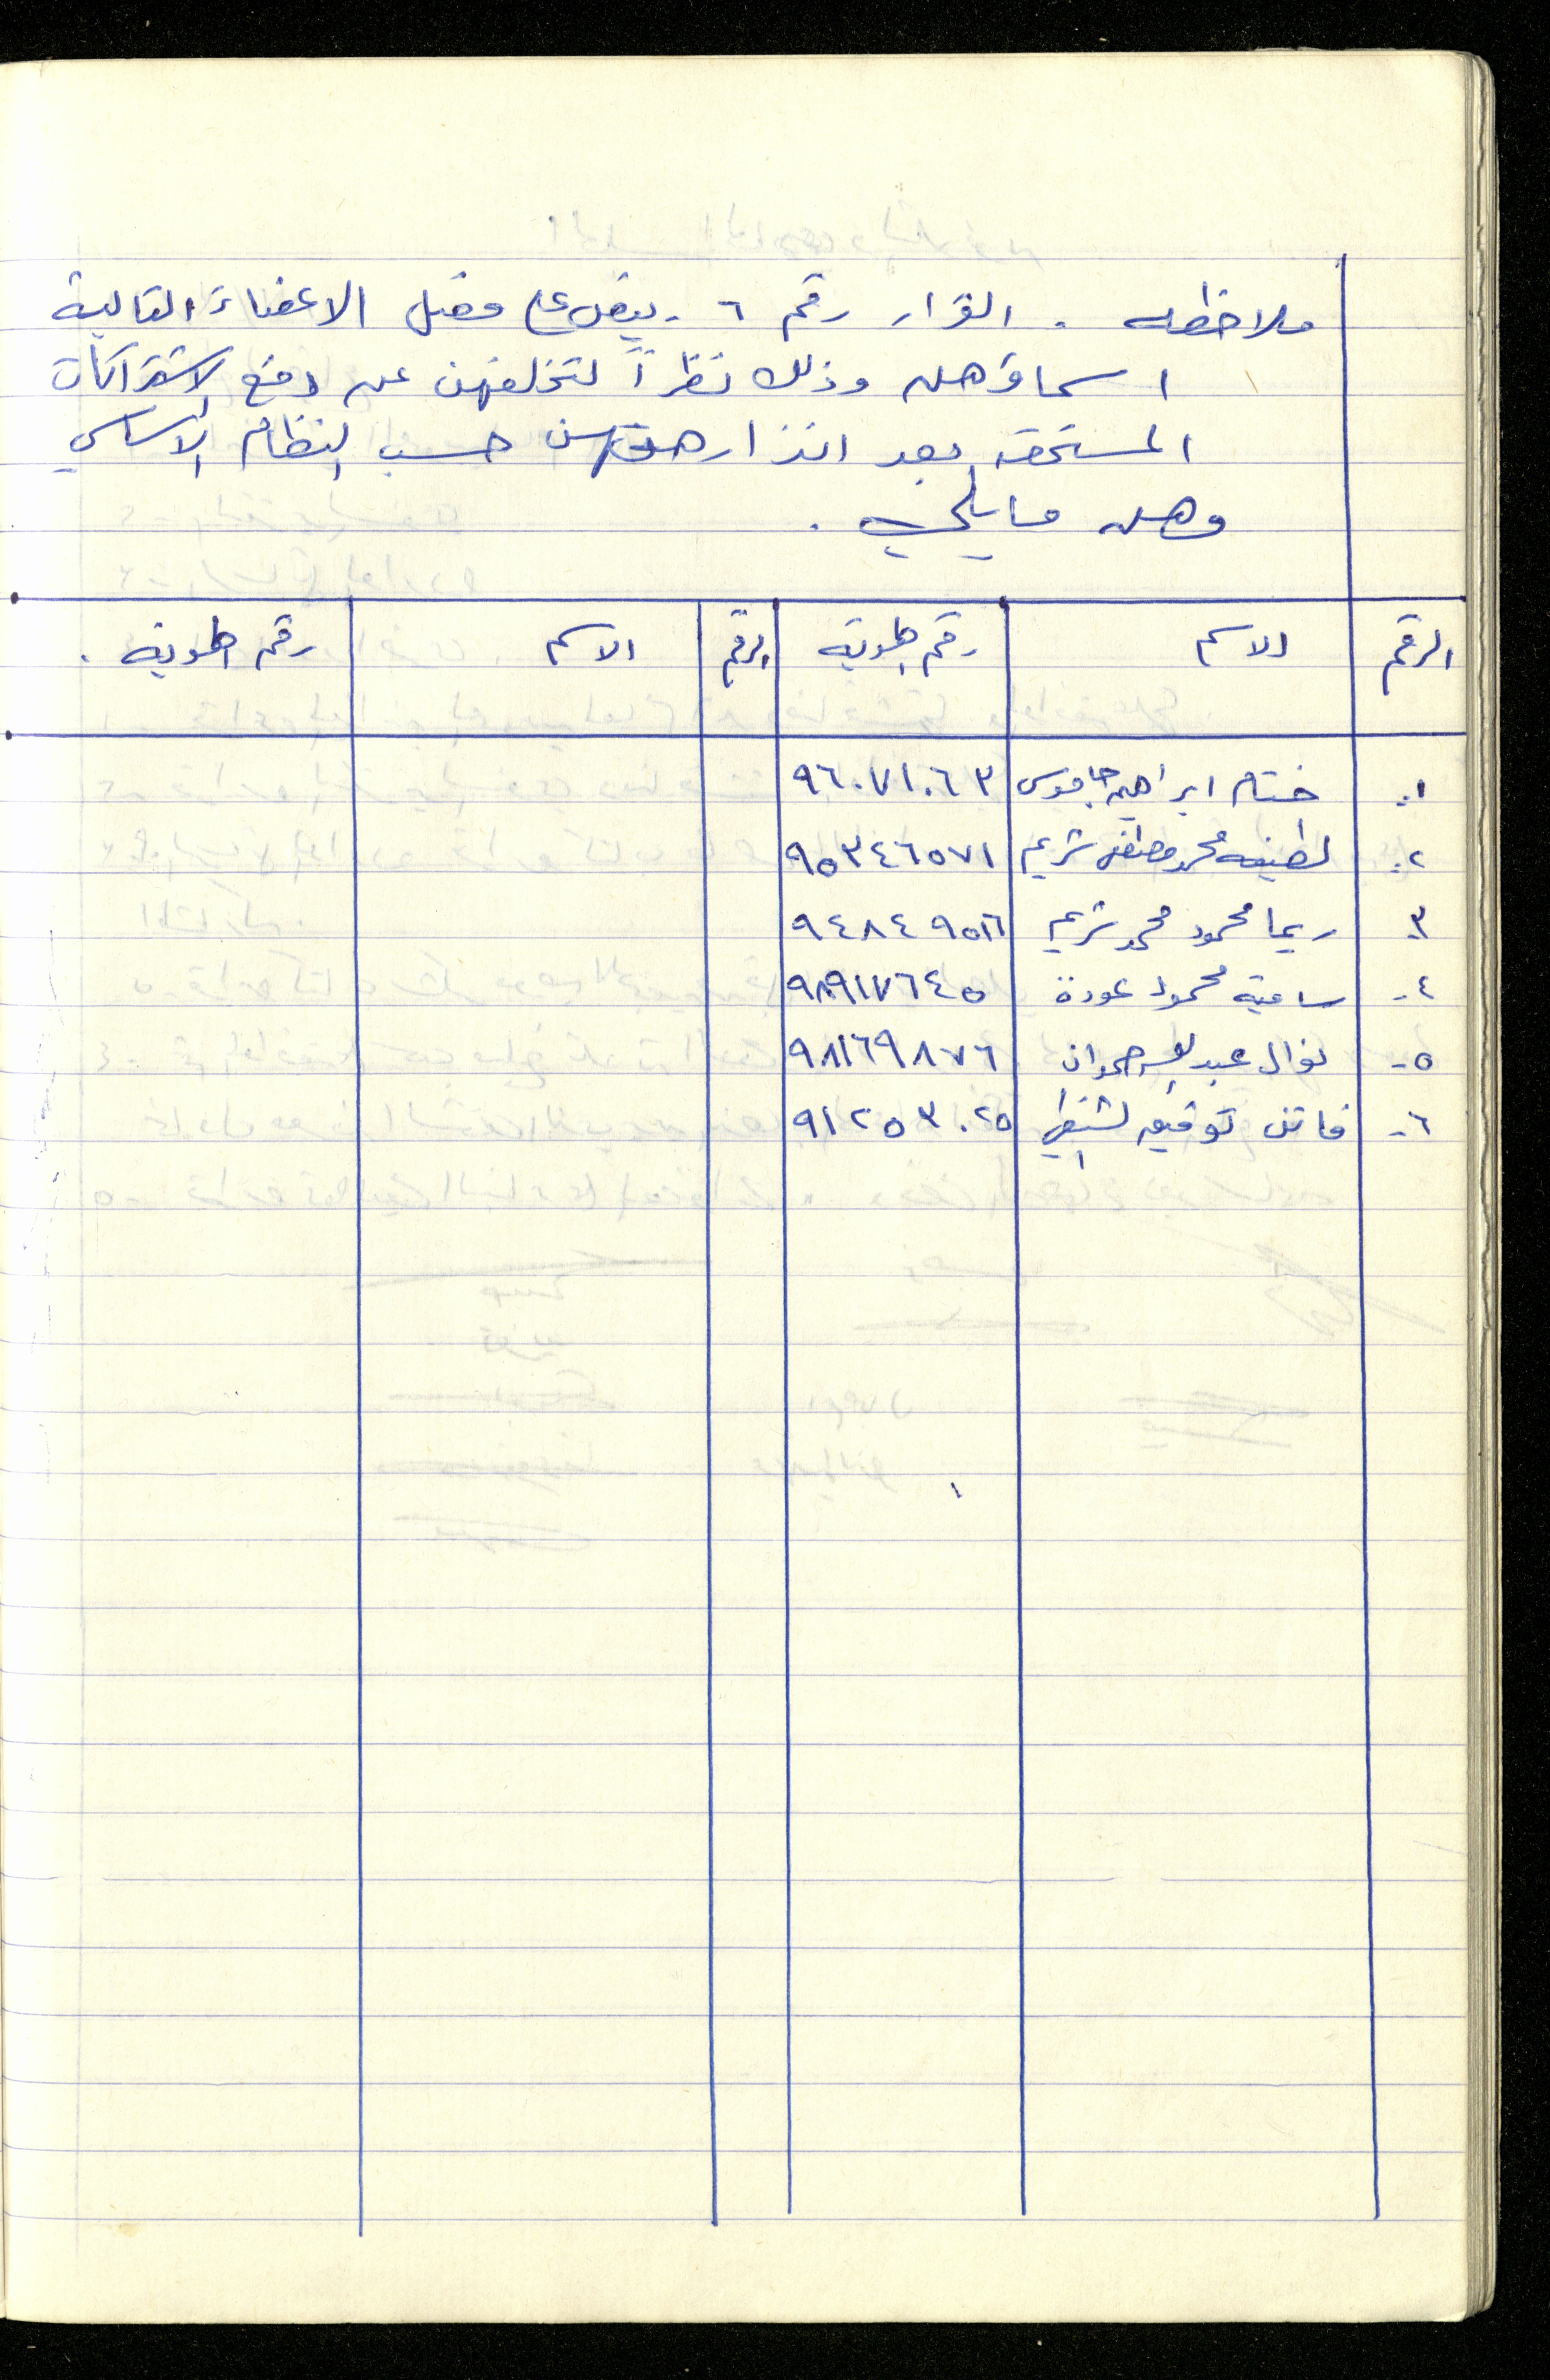 ملاحظه . القرار رقم ٦ - ينص على فصل الاعضاء التالية
اسماؤهن وذلك نظراً لتخلفهن عن دفع الاشتراكات
المستحقه بعد انذارهن حسب النظام الاساسي
وهن ما يلي .
الرقم الاسم رقم الهوية الرقم الاسم رقم الهوية .
١- ختام ابراهيم جاموس ٩٦٠٧١٠٦٣
٢- لطيفه محمد مصطفى شريم ٩٥٣٤٦٥٧١
٣- ريما محمود محمد شريم ٩٤٨٤٩٥١٦
٤- سامية محمود عودة ٩٨٩١٧٦٤٥
٥- نوال عبد الله حمدان ٩٨١٦٩٨٧٦
٦- فاتن توفيق الشنطي ٩١٢٥٣٠٢٥